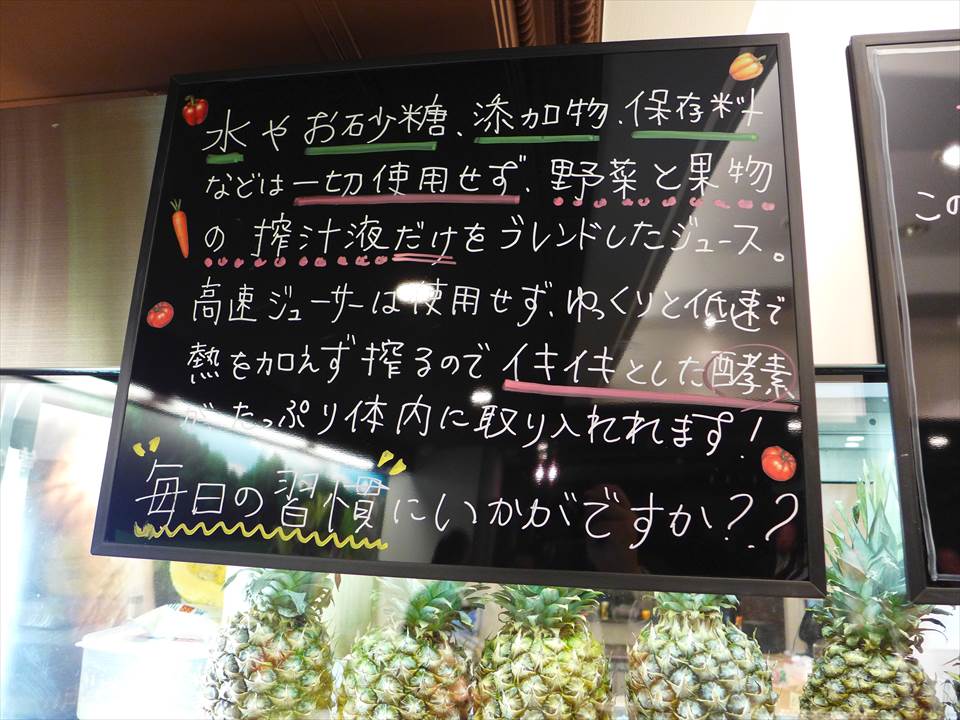 水やお砂糖、添加物、保存料
などは一切使用せず、野菜と果物
の搾汁液だけをブレンドしたジュース。
高速ジューサーは使用せず、ゆっくりと低速で
熱を加えず搾るのでイキイキとした酵素
がたっぷり体内に取り入れれます！
毎日の習慣にいかがですか？？
この